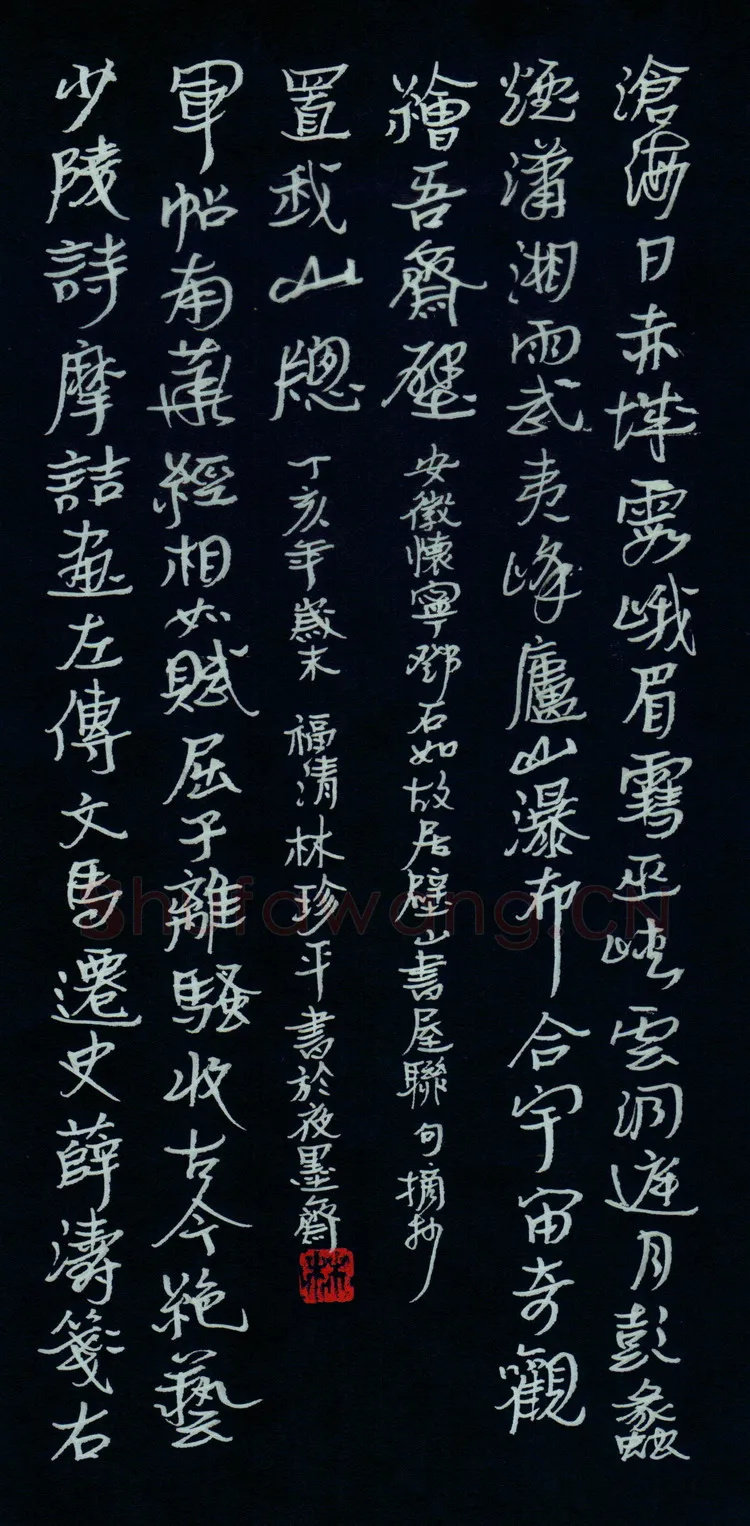 滄海日赤城霞峨眉雪巫峽雲洞庭月彭蠡
煙瀟湘雨武夷峰廬山瀑布合宇宙奇觀
繪吾齋壁 安徽懷寧鄧石如故居壁山書屋聯句摘抄
少陵詩摩詰畫左傳文馬遷史薛濤箋右
軍帖南華經相如賦屈子離騷收古今絕藝
置我山牕 丁亥年歲末 福清林珍平書於夜墨齋
林
Shufawang.CN